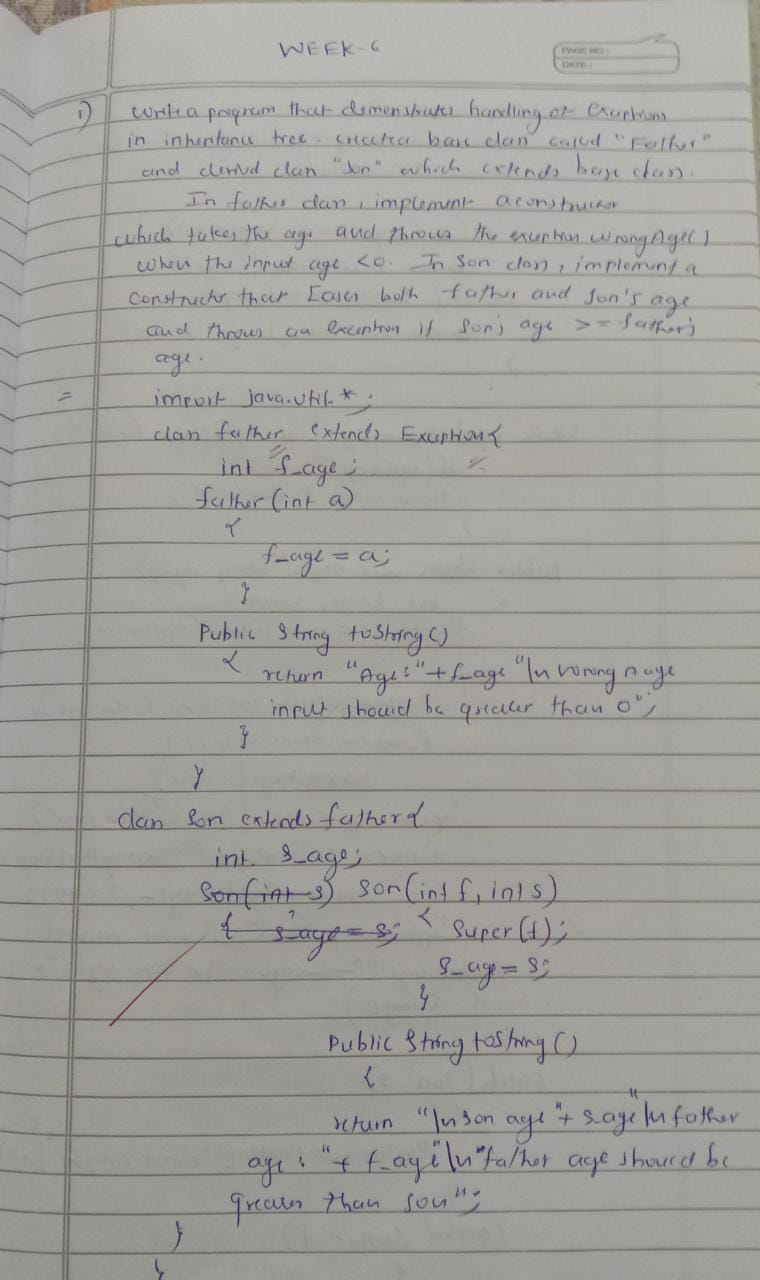 WEEK-6
PAGE NO :
DATE :
1) Write a program that demonstrates handling of exceptions
in inheritance tree. created base class called "Father"
and derived class "Son" which extends base class.
In father class, implement a constructor
which takes the age and throws the exception WrongAge()
when the input age <0. In Son class, implement a
constructor that cases both father and son's age
and throws an exception if son's age >= father's
age.
= import java.util.*;
class father extends Exception{
int f_age;
father(int a)
{
f_age = a;
}
Public String toString()
{ return "Age:"+f_age "\n wrong age
input should be greater than 0";
}
}
class Son extends father{
int s_age;
Son(int s) son(int f, int s)
{ s_age = s; { Super(f);
s_age = s;
}
Public String toString()
{
return "\n son age "+ s_age"\n father
age : "+ f_age"\n"father age should be
greater than son";
}
}